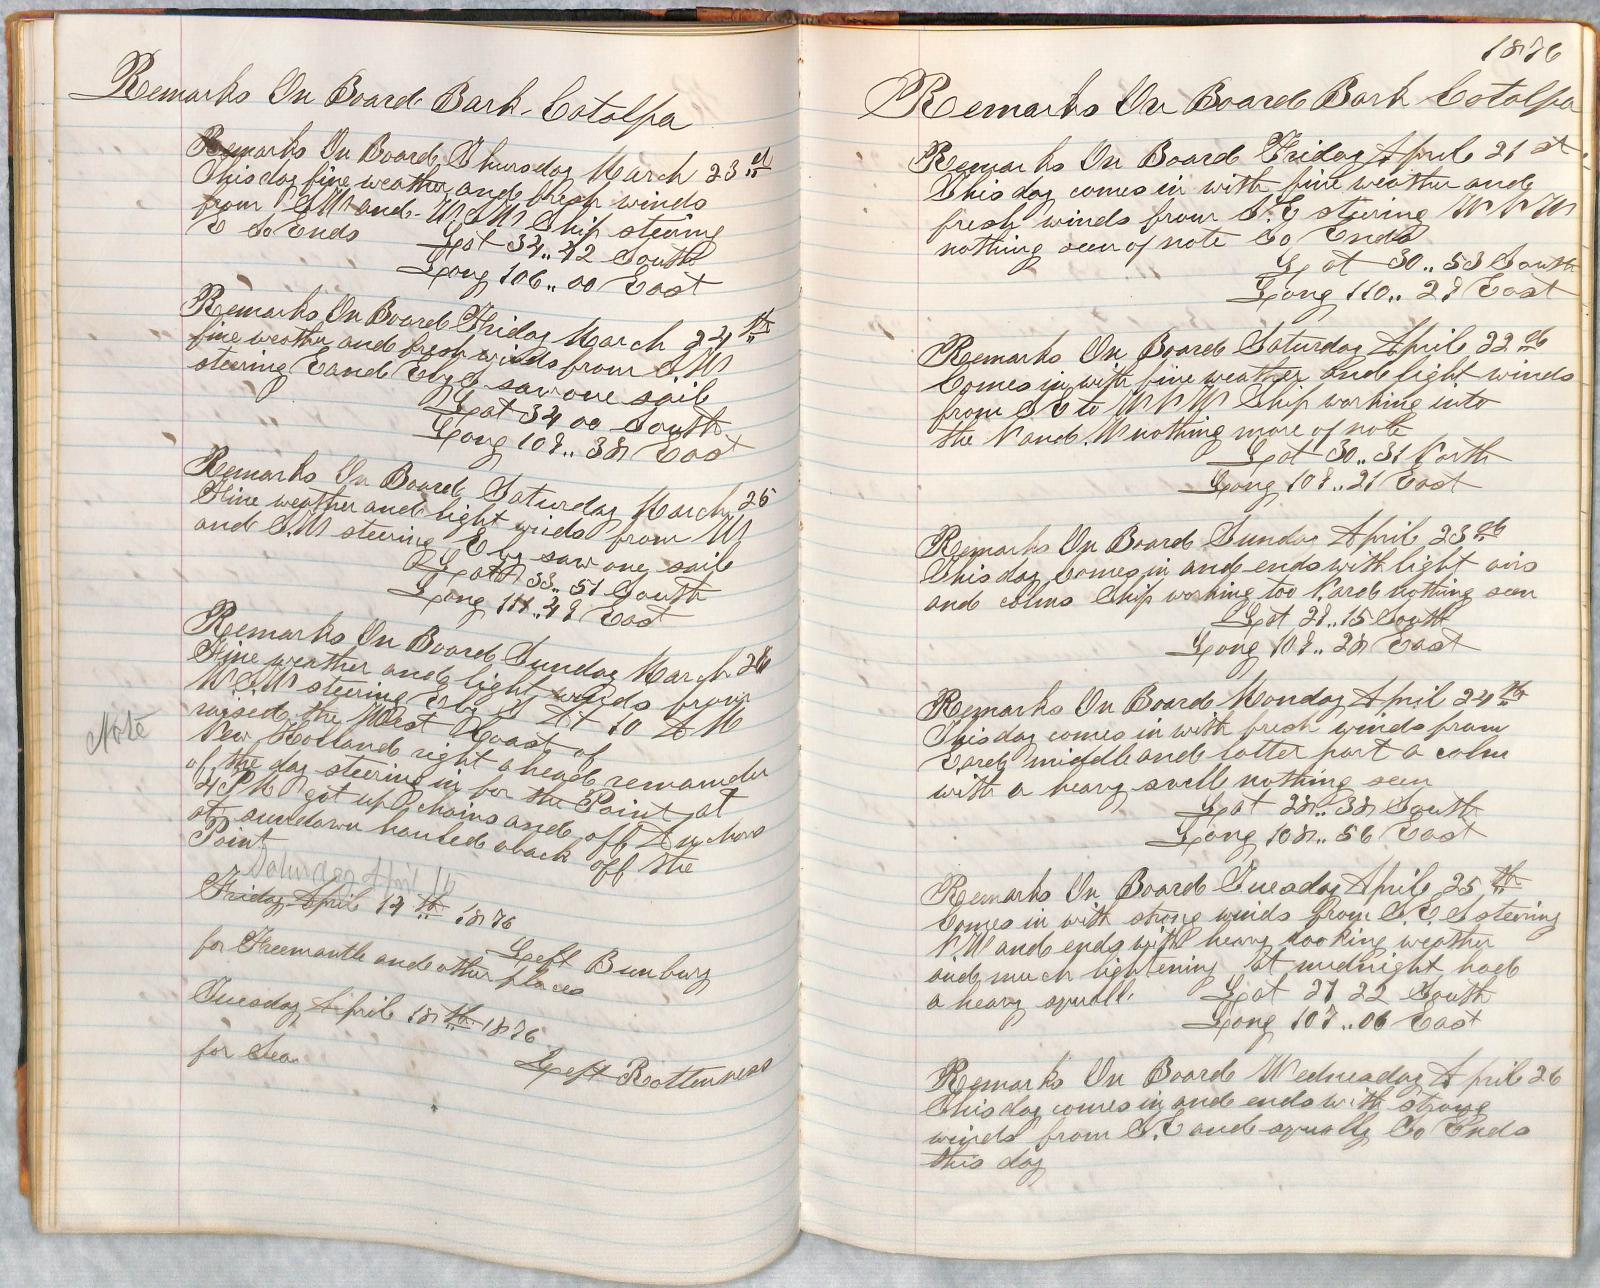 Remarks On Board Bark Catalpa
Remarks On Board Thursday March 23rd
This day fine weather and fresh winds
from SW and WSW Ship steering
E So Ends
Lat 34..42 South
Long 106..00 East
Remarks On Board Friday March 24th
fine weather and fresh winds from SW
steering E and E by S saw one sail
Lat 34 00 South
Long 109..38 East
Remarks On Board Saturday March 25
Fine weather and light winds from W
and S.W steering E by saw one sail
Lat 33..51 South
Long 111..49 East
Remarks On Board Sunday March 26
Fine weather and light winds from
WSW steering E by S At 10 AM
raised the West Coast of
Note
New Holland right ahead remainder
of the day steering in for the Point at
4 PM got up chains and off Anchors
at sundown hauled aback off the
Point
Saturday April 15
Friday April 14th 1876
Left Bunbury
for Freemantle and other places
Tuesday April 18th 1876
Left Rottenness
for Sea
1876
Remarks On Board Bark Catalpa
Remarks On Board Friday April 21st
This day comes in with fine weather and
fresh winds from S.E steering WNW
nothing seen of note So Ends
Lat 30..53 South
Long 110..29 East
Remarks On Board Saturday April 22d
Comes in with fine weather and light winds
from SE to WNW Ship working into
the N and W nothing more of note
Lat 30..31 North
Long 109..21 East
Remarks On Board Sunday April 23d
This day Comes in and ends with light airs
and calms Ship working too Nard nothing seen
Lat 29..15 South
Long 109..28 East
Remarks On Board Monday April 24th
This day comes in with fresh winds from
Eard middle and latter part a calm
with a heavy swell nothing seen
Lat 28..38 South
Long 108..56 East
Remarks On Board Tuesday April 25th
Comes in with strong winds from S.E S steering
N.W and ends with heavy looking weather
and much lightening At midnight had
a heavy squall.
Lat 27 22 South
Long 107..06 East
Remarks On Board Wednesday April 26
This day comes in and ends with strong
winds from S.E and squally So Ends
this day